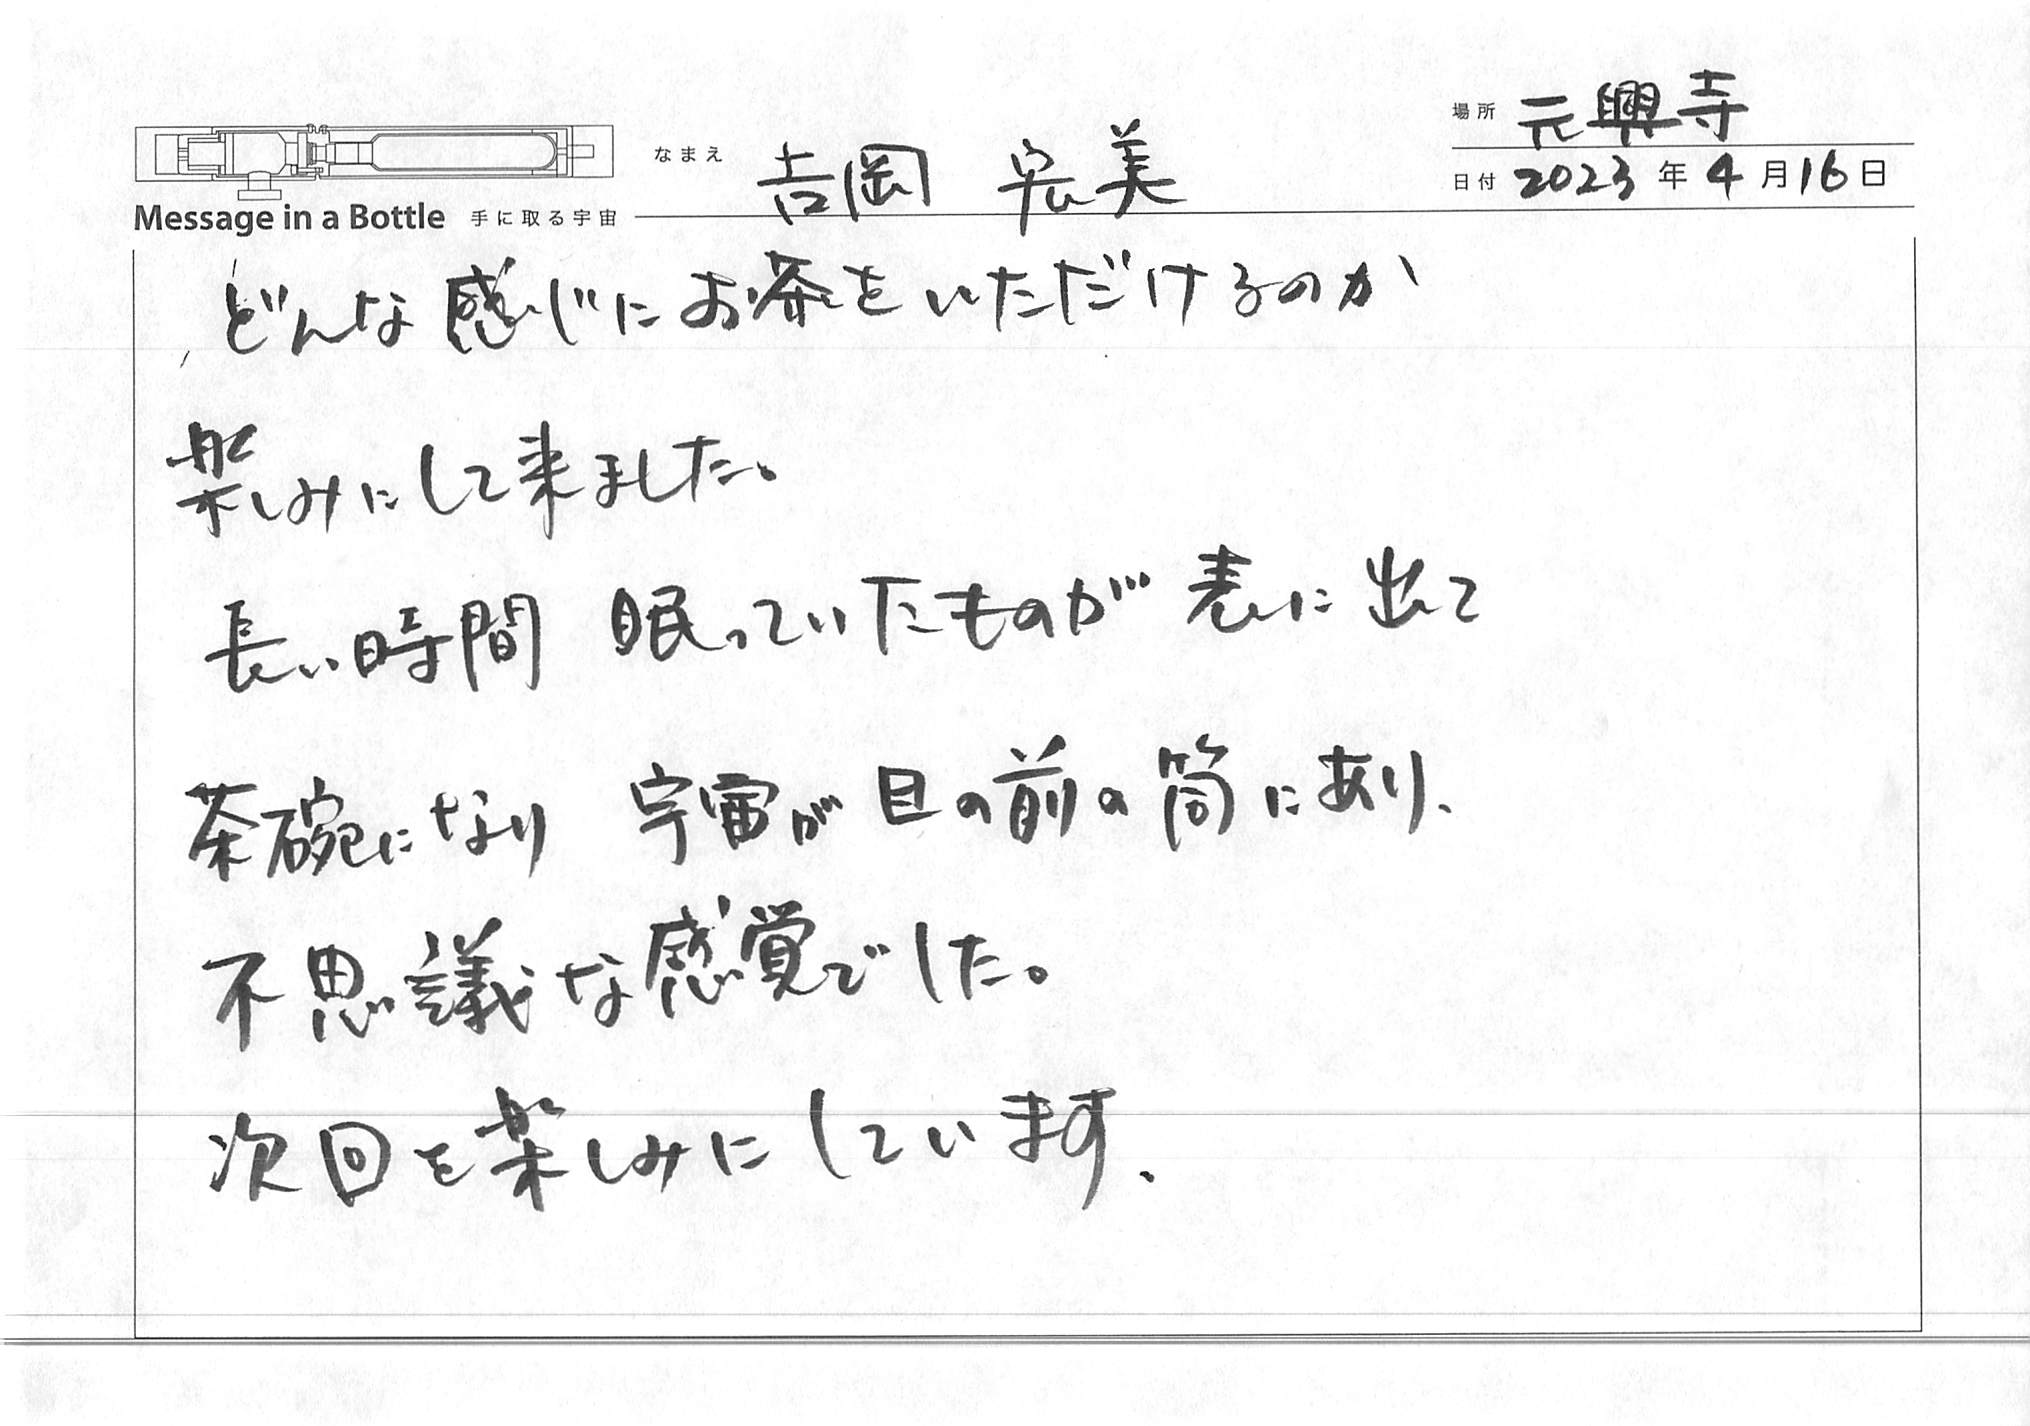 場所 元興寺
なまえ 吉岡 宏美
日付 2023年4月16日
Message in a Bottle 手に取る宇宙
どんな感じにお茶をいただけるのか
楽しみにして来ました。
長い時間 眠っていたものが 表に出て
茶碗になり 宇宙が目の前の筒にあり、
不思議な感覚でした。
次回を楽しみにしています。